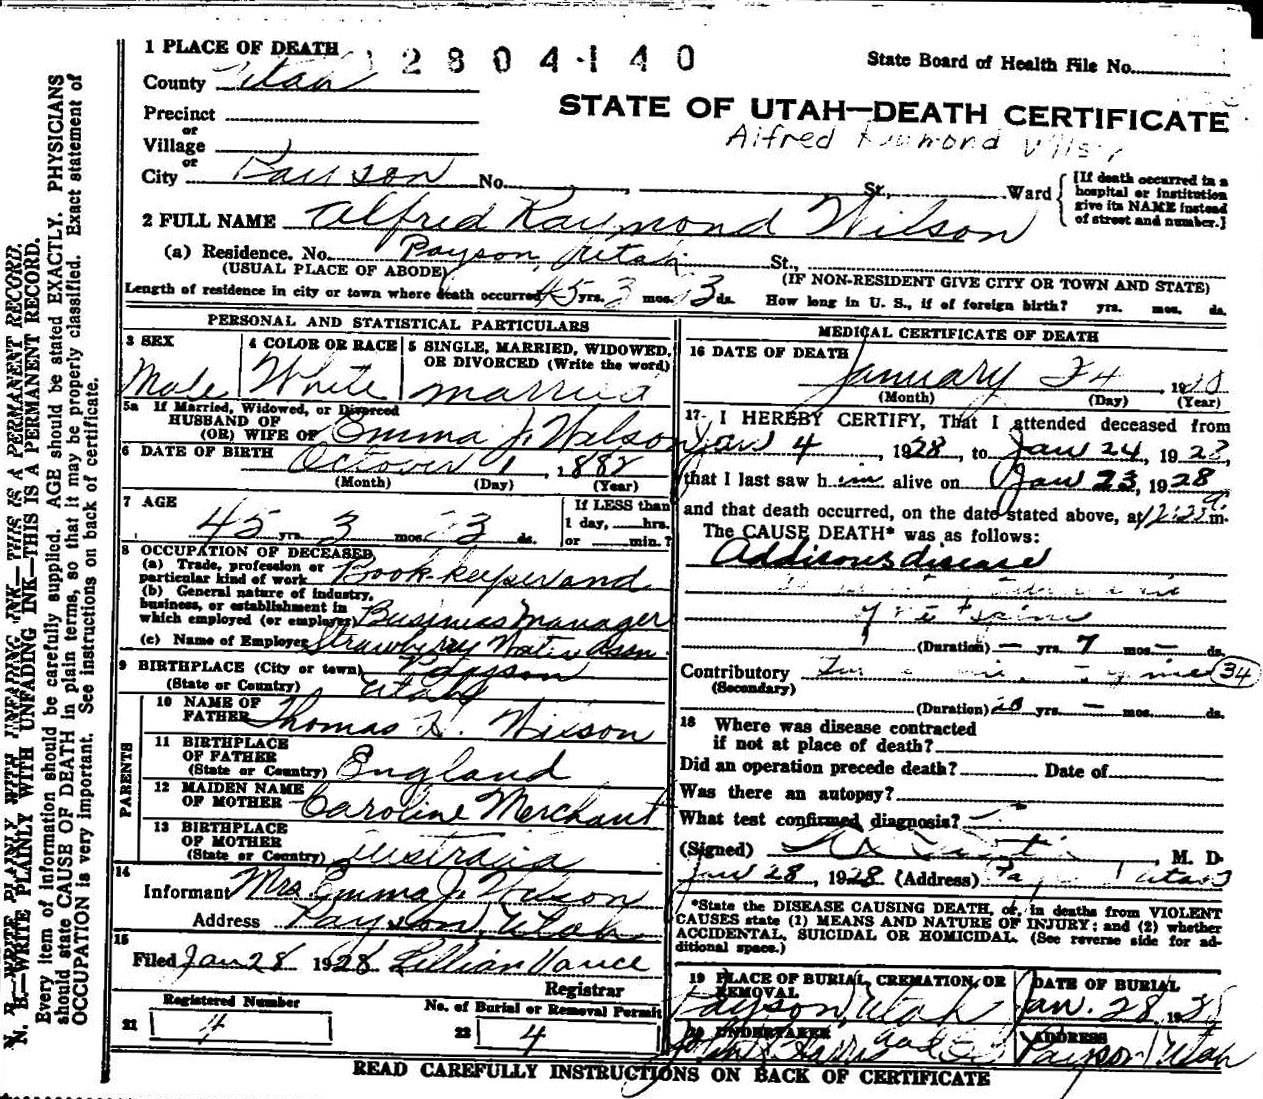 1 PLACE OF DEATH
2 8 0 4 1 4 0
State Board of Health File No.
County Utah
STATE OF UTAH—DEATH CERTIFICATE
Precinct
Alfred Raymond Wilson
or
Village
or
City Payson No. St., Ward
[If death occurred in a hospital or institution give its NAME instead of street and number.]
2 FULL NAME Alfred Raymond Wilson
(a) Residence. No. Payson, Utah St.,
(USUAL PLACE OF ABODE) (IF NON-RESIDENT GIVE CITY OR TOWN AND STATE)
Length of residence in city or town where death occurred 45 yrs. 3 mos. 23 ds. How long in U. S., if of foreign birth? yrs. mos. ds.
PERSONAL AND STATISTICAL PARTICULARS
3 SEX
Male
4 COLOR OR RACE
White
5 SINGLE, MARRIED, WIDOWED, OR DIVORCED (Write the word)
married
5a If Married, Widowed, or Divorced
HUSBAND OF
(OR) WIFE OF Emma J. Wilson
6 DATE OF BIRTH October 1, 1882
(Month) (Day) (Year)
7 AGE
45 yrs. 3 mos. 23 ds.
If LESS than
1 day, hrs.
or min.?
8 OCCUPATION OF DECEASED
(a) Trade, profession or
particular kind of work Book-keeper and
(b) General nature of industry,
business, or establishment in
which employed (or employer) Business Manager
(c) Name of Employer Strawberry Water Assn.
9 BIRTHPLACE (City or town) Payson
(State or Country) Utah
PARENTS
10 NAME OF
FATHER Thomas H. Wilson
11 BIRTHPLACE
OF FATHER
(State or Country) England
12 MAIDEN NAME
OF MOTHER Caroline Merchant
13 BIRTHPLACE
OF MOTHER
(State or Country) Australia
14
Informant Mrs. Emma J. Wilson
Address Payson, Utah
15
Filed Jan 28 1928 Lillian Vance
Registrar
Registered Number
21 4
No. of Burial or Removal Permit
22 4
MEDICAL CERTIFICATE OF DEATH
16 DATE OF DEATH
January 24, 1928
(Month) (Day) (Year)
17 I HEREBY CERTIFY, That I attended deceased from
Jan 4, 1928, to Jan 24, 1928,
that I last saw him alive on Jan 23, 1928
and that death occurred, on the date stated above, at m.
The CAUSE DEATH* was as follows:
Addisons disease
(Duration) — yrs. 7 mos. — ds.
Contributory 34
(Secondary)
(Duration) yrs. — mos. ds.
18 Where was disease contracted
if not at place of death?
Did an operation precede death? Date of
Was there an autopsy?
What test confirmed diagnosis?
(Signed) , M. D.
Jan 28, 1928 (Address) Utah
*State the DISEASE CAUSING DEATH, or, in deaths from VIOLENT
CAUSES state (1) MEANS AND NATURE OF INJURY; and (2) whether
ACCIDENTAL, SUICIDAL OR HOMICIDAL. (See reverse side for ad-
ditional space.)
19 PLACE OF BURIAL, CREMATION, OR
REMOVAL
Payson, Utah
DATE OF BURIAL
Jan. 28, 1928
20 UNDERTAKER
ADDRESS
Payson Utah
READ CAREFULLY INSTRUCTIONS ON BACK OF CERTIFICATE
N. B.—WRITE PLAINLY WITH UNFADING INK—THIS IS A PERMANENT RECORD.
Every item of information should be carefully supplied. AGE should be stated EXACTLY. PHYSICIANS
should state CAUSE OF DEATH in plain terms, so that it may be properly classified. Exact statement of
OCCUPATION is very important. See instructions on back of certificate.